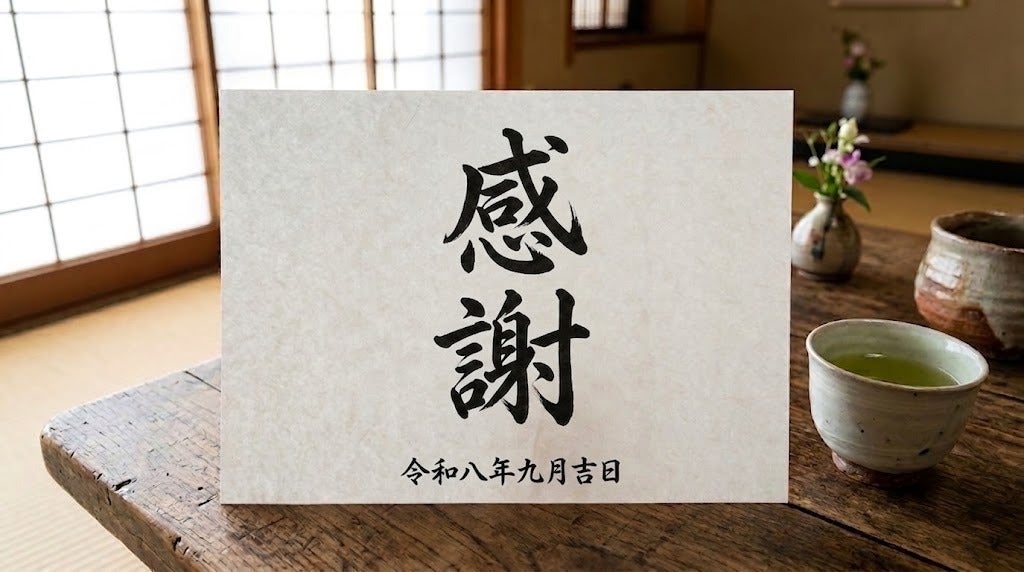 感謝
令和八年九月吉日